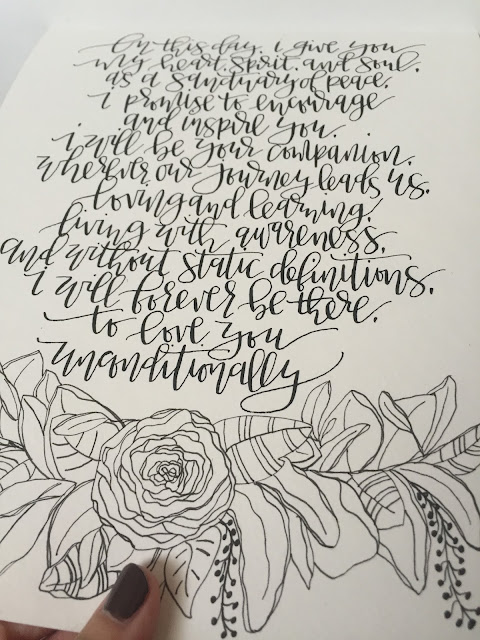 On this day. i give you
my heart. spirit. and soul.
as a sanctuary of peace.
i promise to encourage
and inspire you.
i will be your companion.
wherever our journey leads us.
loving and learning.
living with awareness.
and without static definitions.
i will forever be there.
to love you
unconditionally